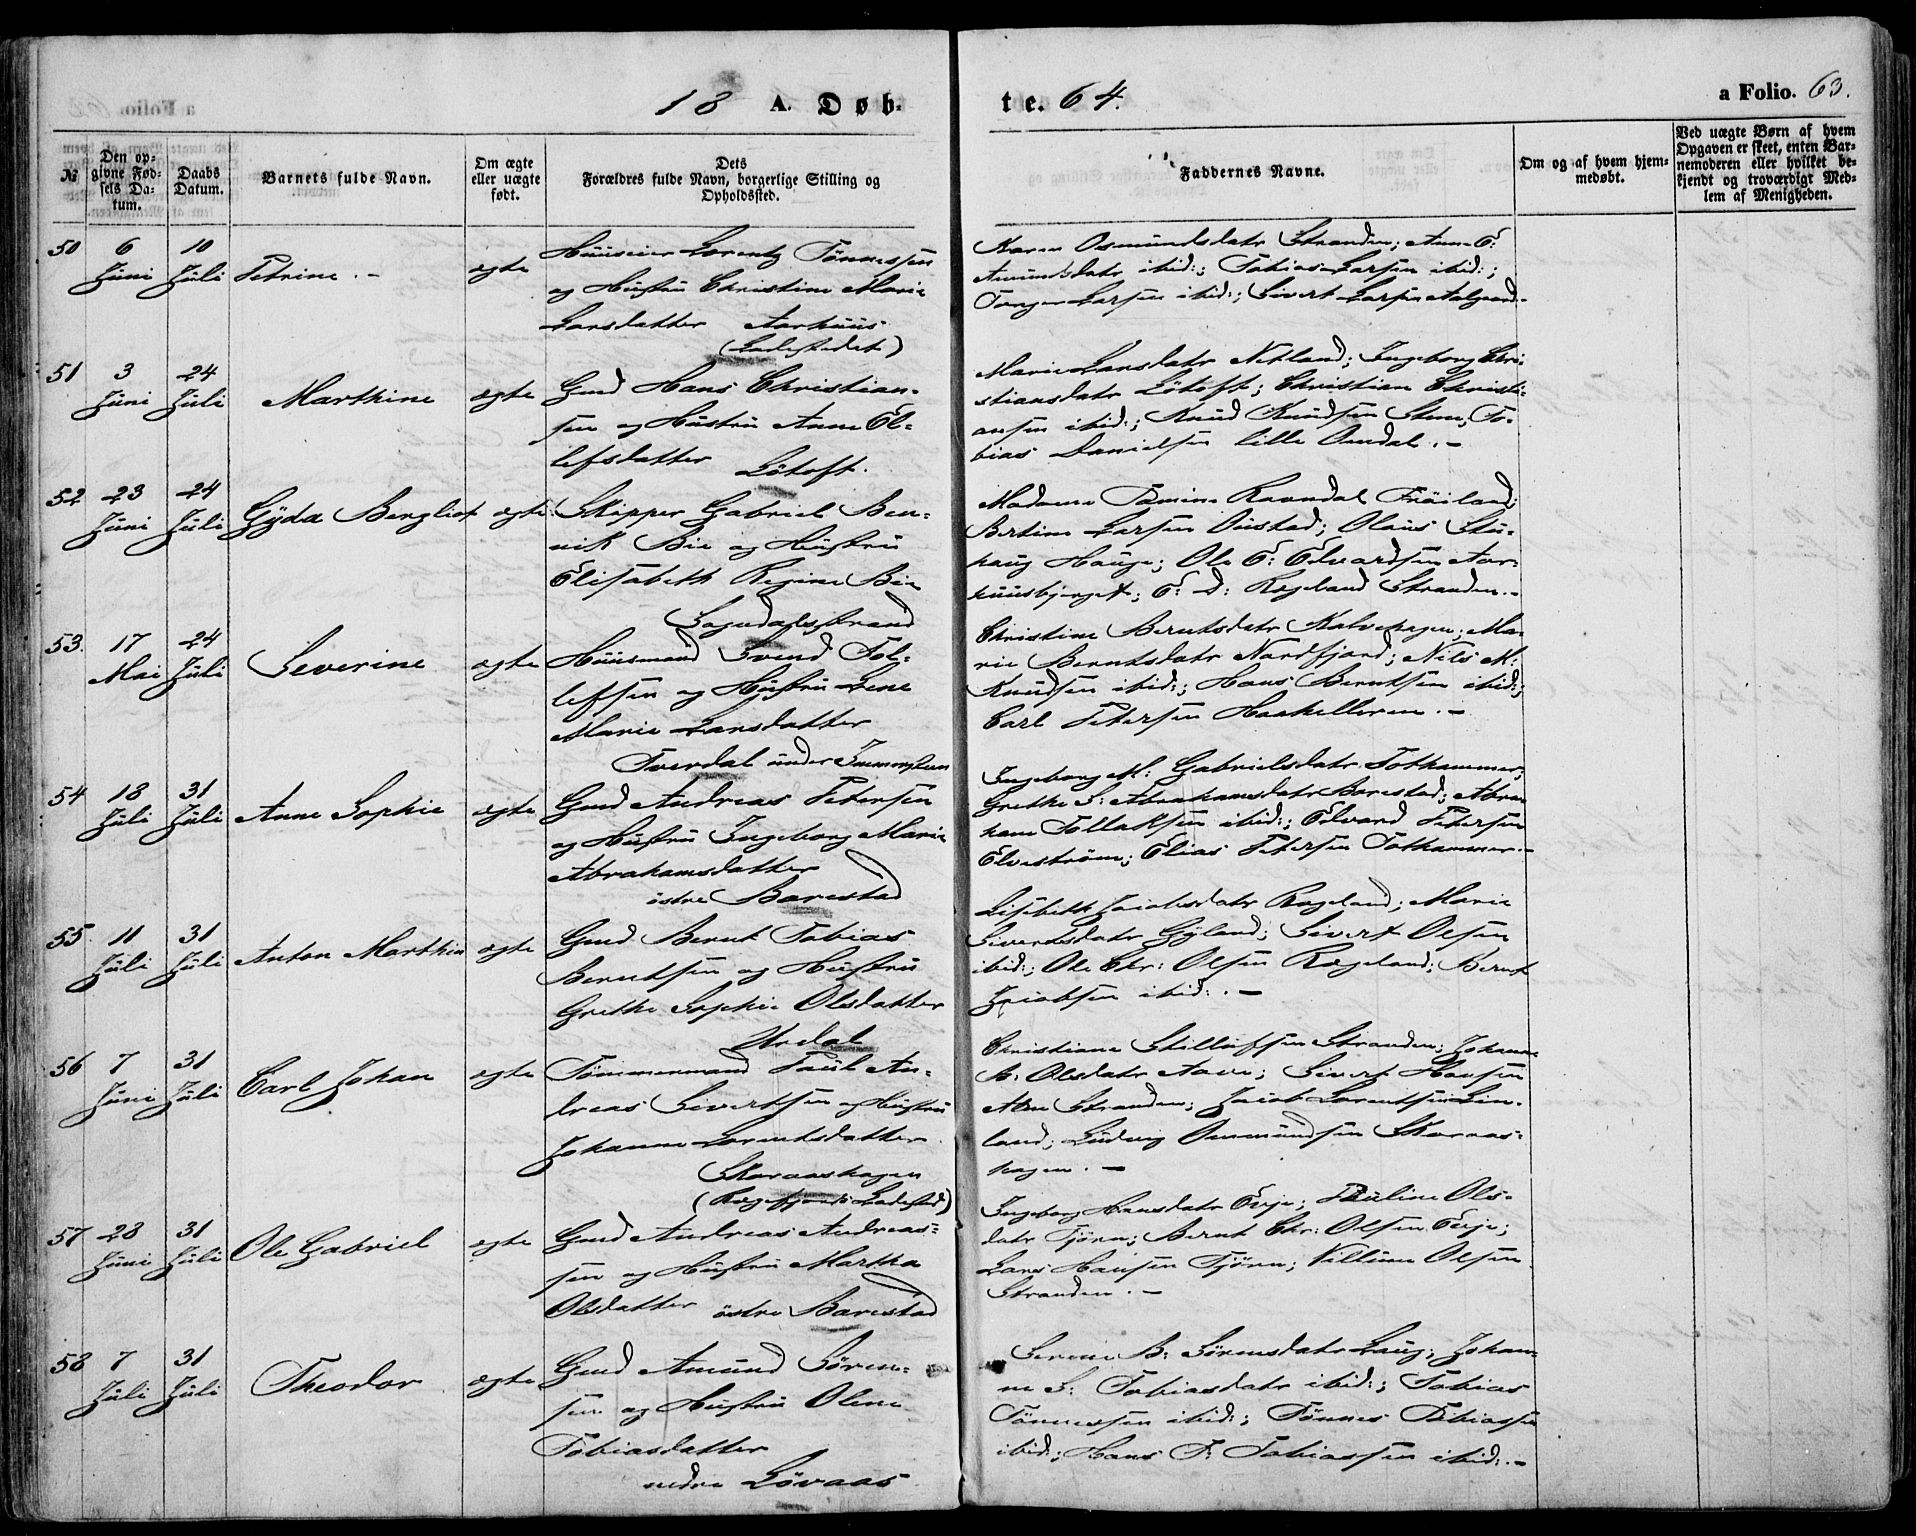 18 A. Døb-
te. 64.
a Folio. 63.
№
Den op-
givne Fød-
sels Da-
tum.
Daabs
Datum.
Barnets fulde Navn.
Om ægte
eller uægte
født.
Dets
Forældres fulde Navn, borgerlige Stilling og
Opholdssted.
Faddernes Navne.
Om og af hvem hjem-
medøbt.
Ved uægte Børn af hvem
Opgaven er skeet, enten Bar-
nemoderen eller hvilket be-
kjendt og troværdigt Med-
lem af Menigheden.
50 6 Juni 10 Juli Petrine. - ægte
Huuseier Lorentz Tönnessen
og Hustru Christine Marie
Larsdatter Aarhuus
(Ladestedet)
Karen Osmundsdatr Stranden; Anne E.
Amundsdatr ibid:; Tobias Larsen ibid:;
Larsen ibid:; Sivert Larsen Aalgaard.-
51 3 Juni 24 Juli Marthine ægte
Gmd Hans Christian-
sen og Hustru Anne El-
lefsdatter Lötoft.
Marie Larsdatr Netland; Ingeborg Chri-
stiansdatr Lötoft; Christian Christi-
ansen ibid:; Knud Knudsen Steen; To-
bias Danielsen lille Omdal. -
52 23 Juni 24 Juli Gyda Bergliot ægte
Skipper Gabriel Ben-
nik Bie og Hustru
Elisabeth Regine Bie
Sogndalsstrand
Madame Tomine Ravndal Fröiland;
Bertine Larsen Oustad; Olaus Stu-
haug Hauge; Ole E: Edvardsen Aar-
huusbjerget; E: D: Rægeland Stranden.-
53. 17 Mai 24 Juli Severine ægte
Huusmand Svend Tol-
lefsen og Hustru Lene
Marie Larsdatter
Tverdal under Immerstein
Christine Berntsdatr Kalvehagen; Ma-
rie Berntsdatr Nordfjord; Nils M:
Knudsen ibid:; Hans Berntsen ibid:;
Carl Petersen Haakelleren. -
54 18 Juli 31 Juli Anne Sophie ægte
Gmd Andreas Petersen
og Hustru Ingeborg Marie
Abrahamsdatter
östre Barestad
Ingeborg M: Gabrielsdatr Tothammer;
Grethe S: Abrahamsdatr Barestad; Abra-
ham Tollaksen ibid:; Edvard Petersen
Elveström; Elias Petersen Tothammer.-
55. 11 Juli 31 Juli Anton Marthin ægte
Gmd Bernt Tobias
Berntsen og Hustru
Grethe Sophie Olsdatter
Urdal
Lisebeth Jacobsdatr Rægeland; Marie
Sivertsdatr Gyland; Sivert Olsen
ibid:; Ole Chr: Olsen Rægeland; Bernt
Jacobsen ibid:. -
56 7 Juni 31 Juli Carl Johan ægte
Tömmermand Paul An-
dreas Sivertsen og Hustru
Johanne Lorentsdatter
Skaraashagen
(Rægefjords Ladested)
Christiane Stilluffsen Stranden; Johanne
B: Olsdatr Aavie; Sivert Hansen
Stranden; Jacob Lorentsen Lin-
land; Ludvig Ommundsen Skaraas-
hagen. -
57 28 Juni 31 Juli Ole Gabriel ægte
Gmd Andreas Andreas-
sen og Hustru Martha
Olsdatter östre Barestad
Ingeborg Hansdatr Evje; Pauline Ols-
datr Tjörn; Bernt Chr: Olsen Evje;
Lars Hansen Tjörn; Villum Olsen
Stranden. -
58 7 Juli 31 Juli Theodor ægte
Gmd Amund Sören-
sen og Hustru Olene
Tobiasdatter
nedre Lövaas
Serine B: Sörensdatr Laug; Johan-
ne S: Tobiasdatr ibid:; Tobias
Tönnessen ibid:; Tönnes Tobiassen
ibid:; Hans T: Tobiassen ibid:.-